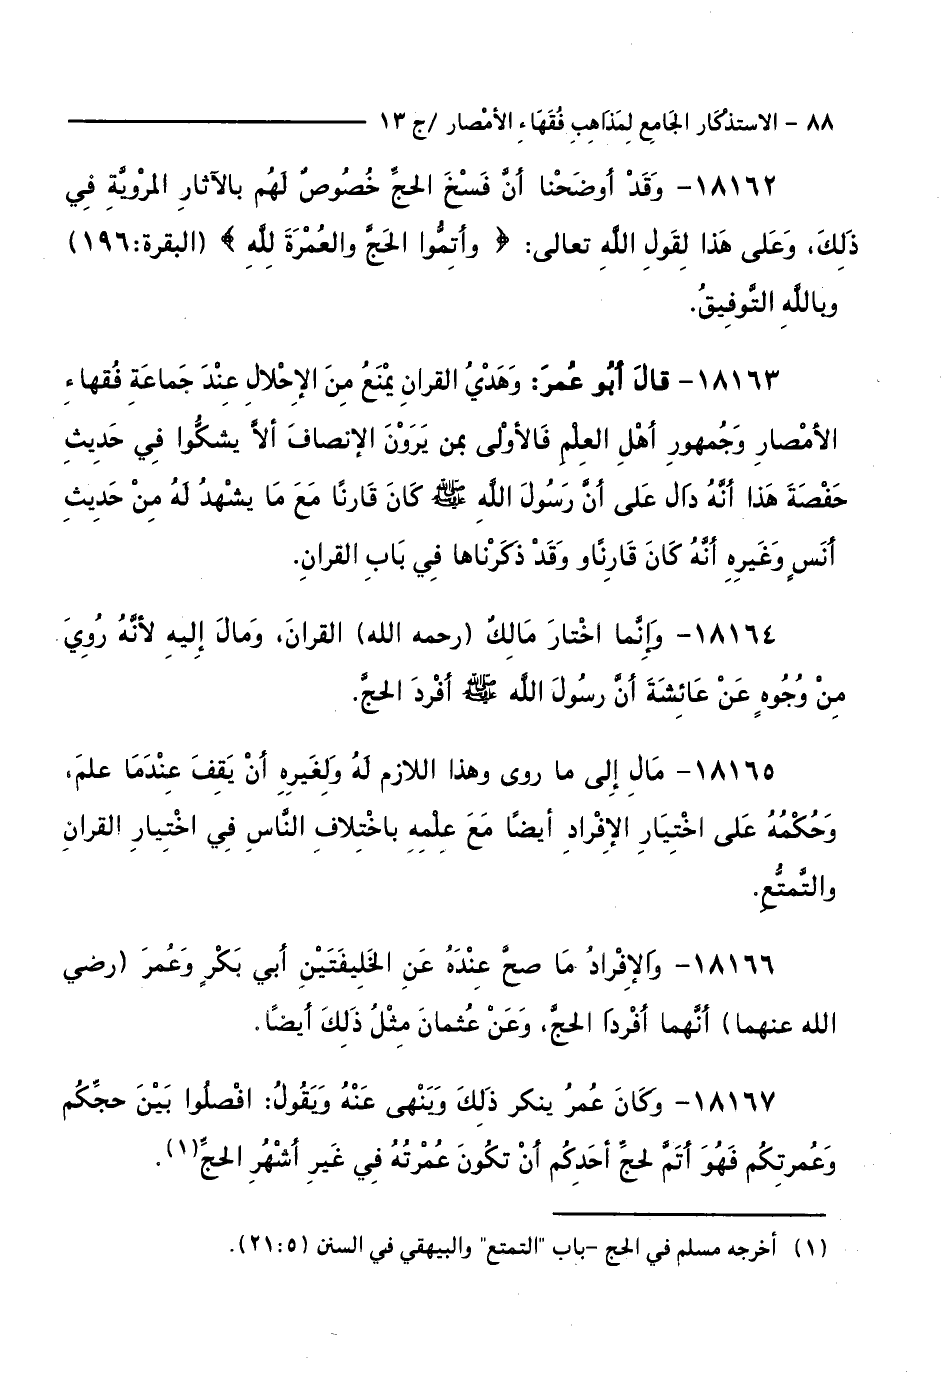 ٨٨ - الاستذكار الجامع لمَذاهب فُقَهَاء الأمْصار /ج ١٣
١٨١٦٢- وَقَدْ أوضَحْنا أنَّ فَسْخَ الحجِّ خُصُوصٌ لَهُم بالآثار المرْويَّة فِي
ذَلِكَ، وَعَلى هَذا لِقَولِ اللَّه تعالى: ﴿ وأتِمُّوا الحَجَّ والعُمْرَةَ للَّه ﴾ (البقرة:١٩٦)
وباللَّهِ التَّوفِيقُ.
١٨١٦٣- قالَ أبُو عُمرَ: وَهَدْيُ القرانِ يمْنَعُ مِنَ الإحْلالِ عِنْدَ جَماعَةِ فُقهاء
الأمْصارِ وَجُمهورِ أهْلِ العِلْمِ فَالأولْى بمن يَرَوْنَ الإنصافَ ألاَّ يشكُّوا فِي حَديثِ
حَفْصَةَ هَذا أنَّهُ دَال عَلى أنَّ رَسُولَ اللَّه ﷺ كَانَ قَارنًا مَعَ مَا يشْهدُ لَهُ مِنْ حَديثِ
أنَسٍ وَغَيرِهِ أنَّهُ كَانَ قَارِنًاو وَقَدْ ذكَرْناها فِي بَاب القرانِ.
١٨١٦٤- وَإنَّما اخْتارَ مَالِكٌ (رحمه الله) القرانَ، وَمالَ إليهِ لأنَّهُ رُوِيَ
مِنْ وُجُوهٍ عَنْ عَائِشَةَ أنَّ رسُولَ اللَّه ﷺ أفْردَ الحجَّ.
١٨١٦٥- مَالِ إلى ما روى وهذا اللازم لَهُ وَلِغَيرِهِ أنْ يَقِفَ عِنْدَمَا علمَ،
وَحُكْمُهُ عَلى اخْتِيَارِ الإفْرادِ أيضًا مَعَ عِلْمِهِ بِاخْتِلافِ النَّاس فِي اخْتِيارِ القران
والتَّمتُّعِ.
١٨١٦٦- وَالإفْرادُ مَا صحَّ عِنْدَهُ عَنِ الخَلِيفَتَيْنِ أبي بَكْرٍ وَعُمرَ (رضي
الله عنهما) أنَّهما أفْردَا الحجَّ، وَعَنْ عُثمانَ مِثْلُ ذَلِكَ أيضًا.
١٨١٦٧- وكَانَ عُمرُ ينكر ذلِكَ وَيَنْهى عَنْهُ وَيَقُولُ: افْصلُوا بَيْنَ حجِّكُم
وَعُمرتِكُم فَهُوَ أتَمُّ لحجِّ أحَدِكُم أنْ تكُونَ عُمْرتُهُ فِي غَيرِ أشْهُرِ الحجِّ(١).
(١) أخرجه مسلم في الحج -باب "التمتع" والبيهقي في السنن (٢١:٥).